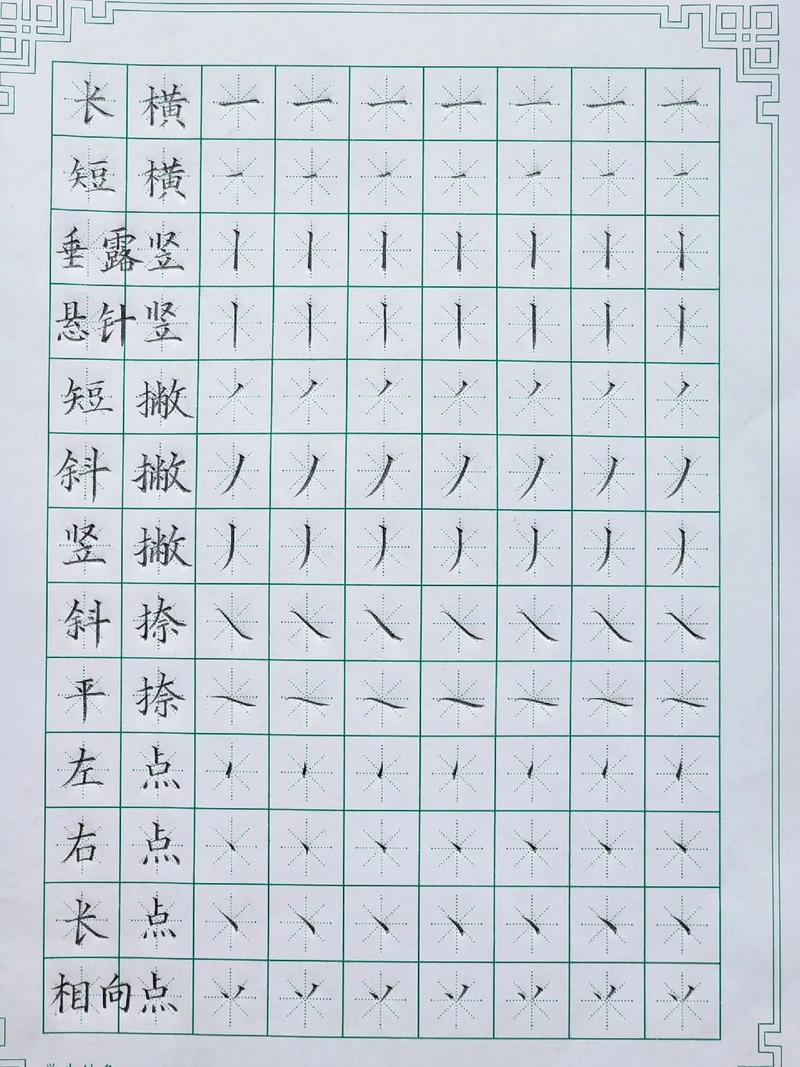 长横一一一一一一一
短横一一一一一一一
垂露竖丨丨丨丨丨丨丨
悬针竖丨丨丨丨丨丨丨
短撇丿丿丿丿丿丿丿
斜撇丿丿丿丿丿丿丿
竖撇丿丿丿丿丿丿丿
斜捺㇏㇏㇏㇏㇏㇏㇏
平捺㇏㇏㇏㇏㇏㇏㇏
左点丶丶丶丶丶丶丶
右点丶丶丶丶丶丶丶
长点丶丶丶丶丶丶丶
相向点丷丷丷丷丷丷丷